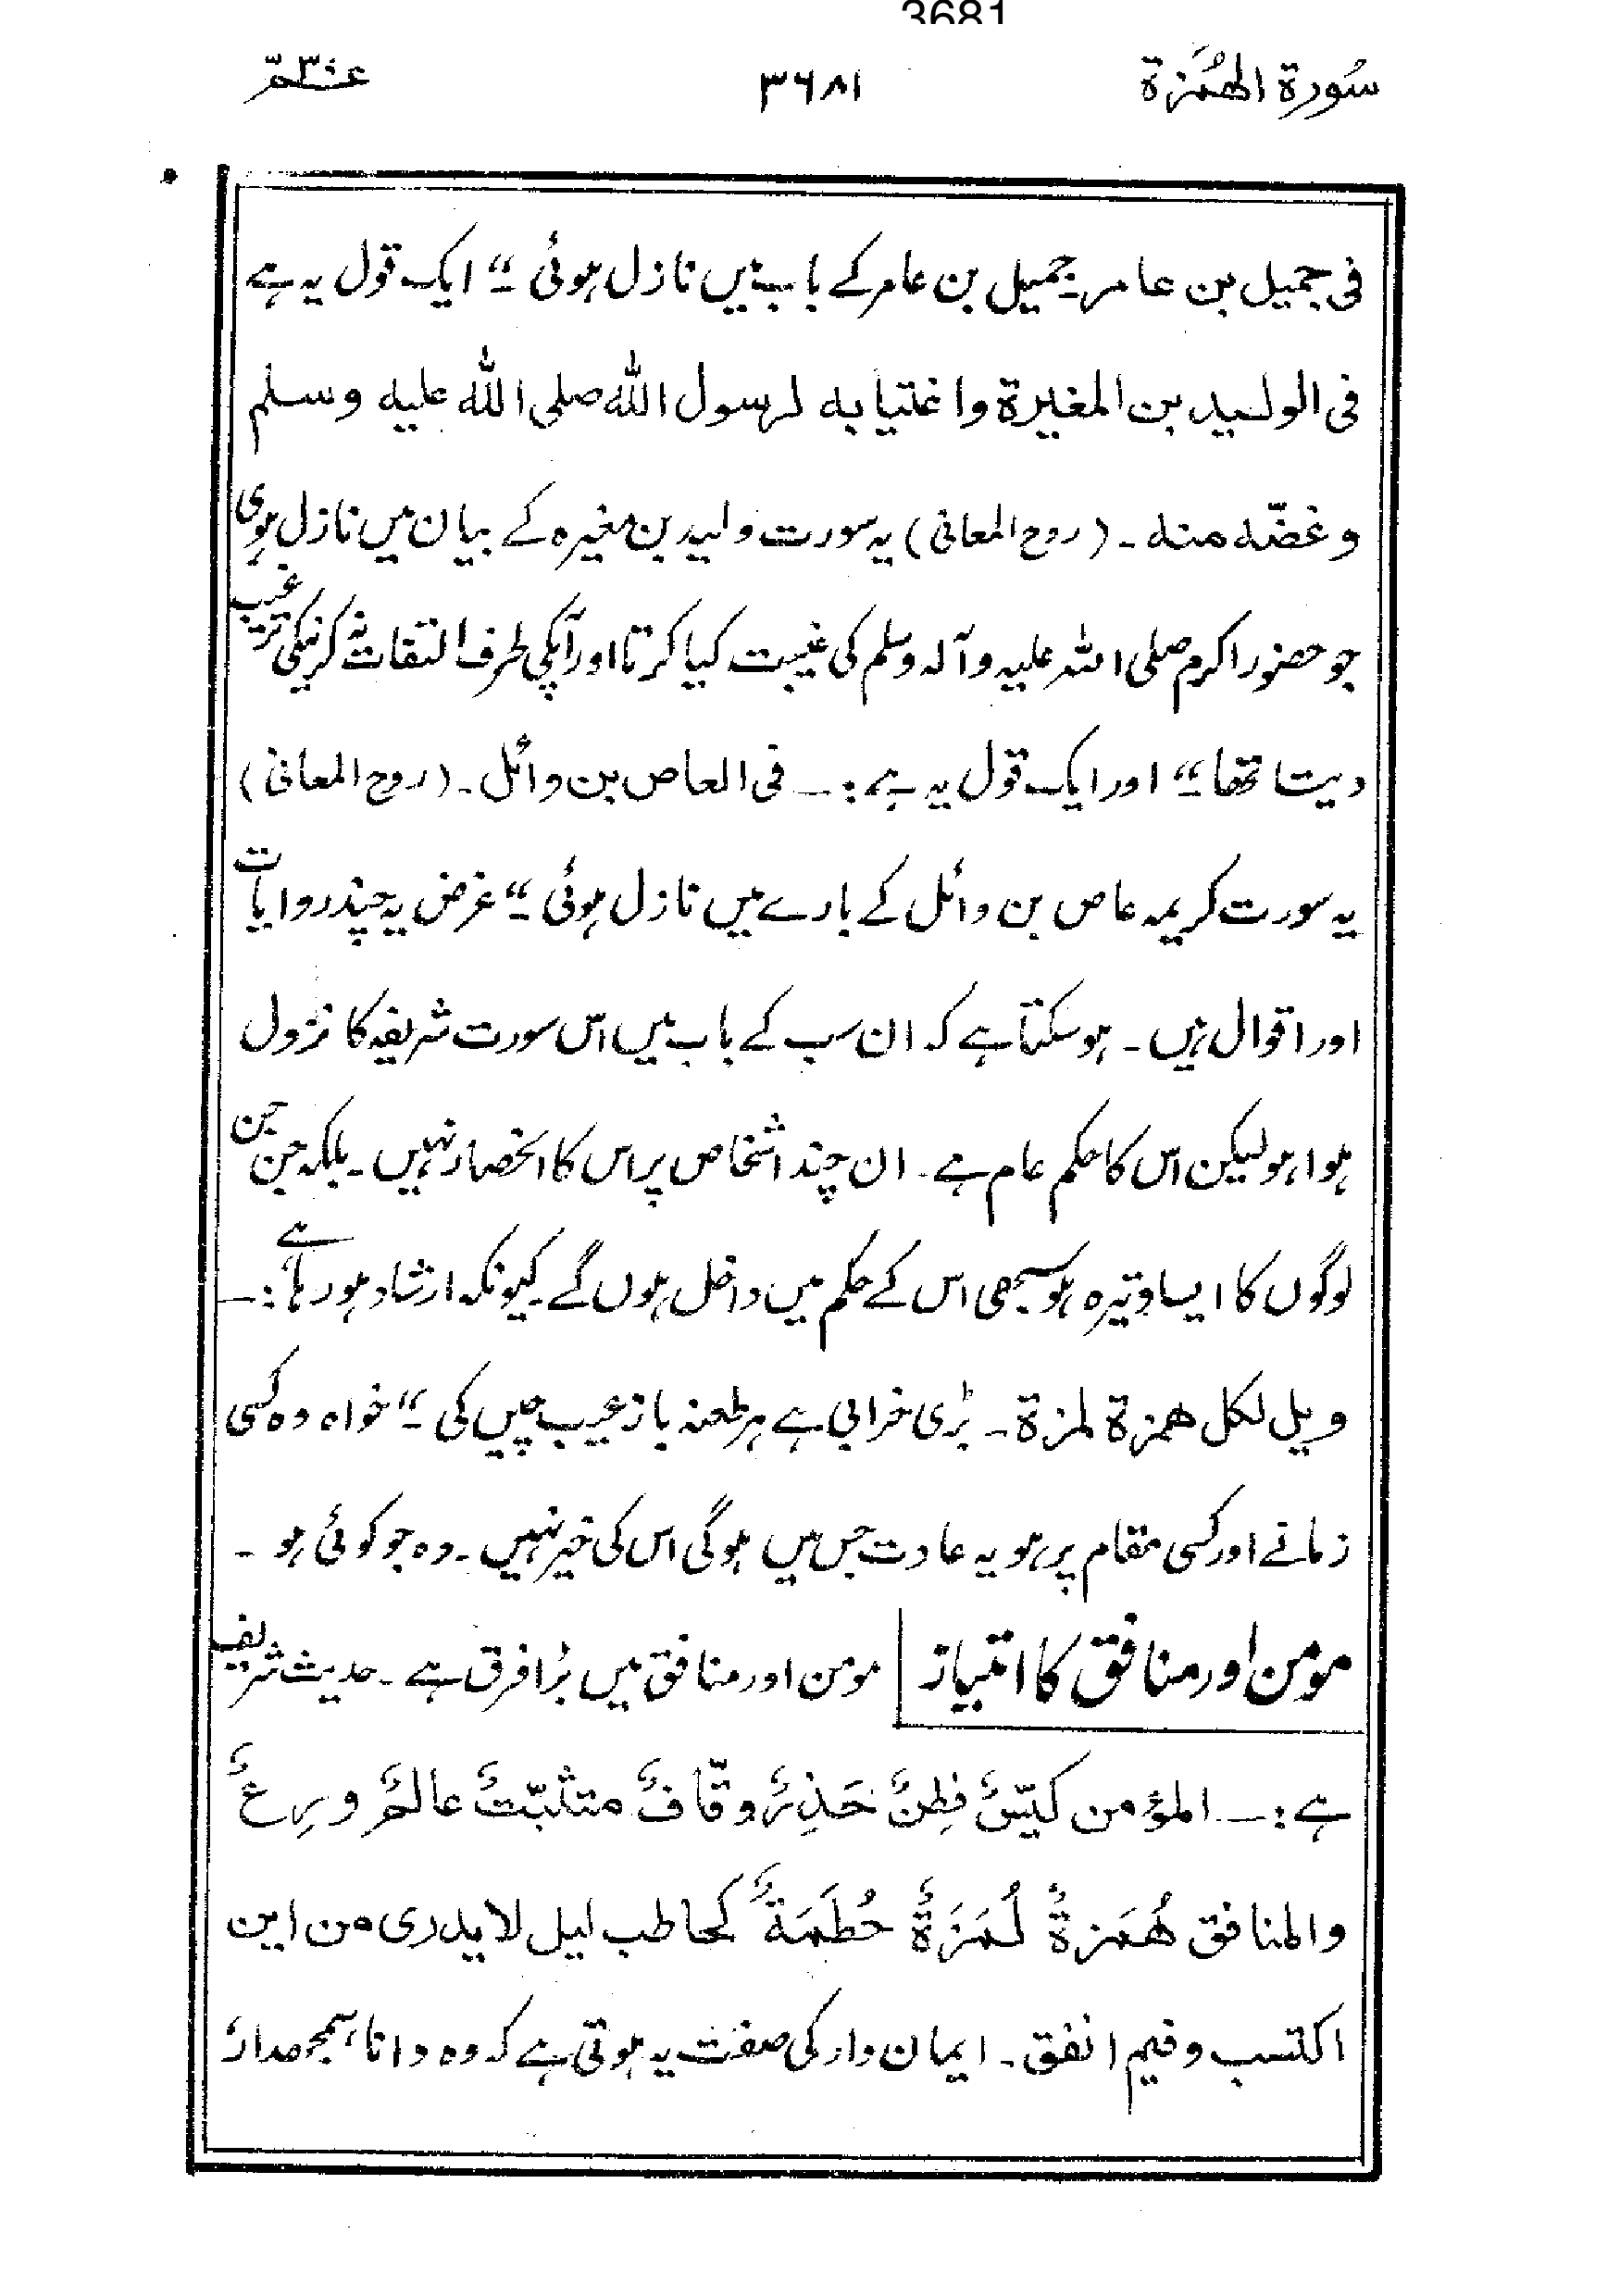 3681
سُورة الهُمَزة ۳۶۸۱ عـمّ ۳۰
فی جمیل بن عامر۔ جمیل بن عامر کے باب میں نازل ہوئی ‘‘۔ ایک قول یہ ہے
فی الولید بن المغیرة واغتیابه لرسول الله صلی الله علیه وسلم
وغضّه منه ۔ (روح المعانی) یہ سورت ولید بن مغیرہ کے بیان میں نازل ہوئی
جو حضور اکرم صلی اللہ علیہ وآلہ وسلم کی غیبت کیا کرتا اور آپکی طرف التفات نہ کرنیکی ترغیب
دیتا تھا ‘‘۔ اور ایک قول یہ ہے :۔ فی العاص بن وائل۔ (روح المعانی)
یہ سورت کریمہ عاص بن وائل کے بارے میں نازل ہوئی ‘‘۔ غرض یہ چند روایات
اور اقوال ہیں ۔ ہو سکتا ہے کہ ان سب کے باب میں اس سورت شریفہ کا نزول
ہوا ہو لیکن اس کا حکم عام ہے ۔ ان چند اشخاص پر اس کا انحصار نہیں ۔ بلکہ جن جن
لوگوں کا ایسا وتیرہ ہو سبھی اس کے حکم میں داخل ہوں گے ۔ کیونکہ ارشاد ہو رہا ہے :۔
ویل لکل همزة لمزة ۔ بڑی خرابی ہے ہر طعنہ باز عیب چیں کی ‘‘۔ خواہ وہ کسی
زمانے اور کسی مقام پر ہو یہ عادت جس میں ہوگی اس کی خیر نہیں ۔ وہ جو کوئی ہو ۔
مومن اور منافق کا امتیاز مومن اور منافق میں بڑا فرق ہے ۔ حدیث شریف
ہے :۔ المؤمن کیّسٌ فَطِنٌ حَذِرٌ وقّافٌ متثبّتٌ عالمٌ ورِعٌ
والمنافق هُمَزةٌ لُمَزَةٌ حُطَمَةٌ کحاطب لیل لا یدری من این
اکتسب وفیم انفق ۔ ایمان دار کی صفت یہ ہوتی ہے کہ وہ دانا، سمجھدار،